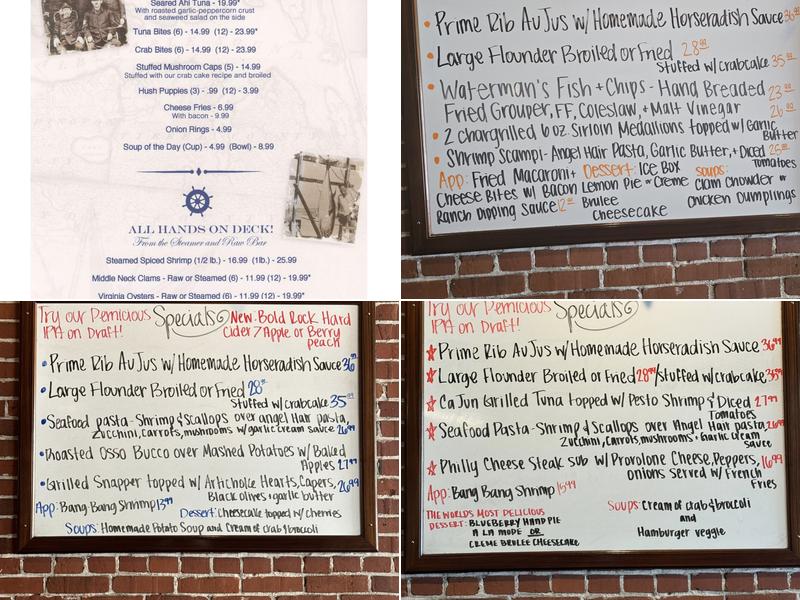 Seared Ahi Tuna - 19.99*
With roasted garlic-peppercorn crust
and seaweed salad on the side
Tuna Bites (6) - 14.99 (12) - 23.99*
Crab Bites (6) - 14.99 (12) - 23.99
Stuffed Mushroom Caps (5) - 14.99
Stuffed with our crab cake recipe and broiled
Hush Puppies (3) - .99 (12) - 3.99
Cheese Fries - 6.99
With bacon - 9.99
Onion Rings - 4.99
Soup of the Day (Cup) - 4.99 (Bowl) - 8.99
ALL HANDS ON DECK!
From the Steamer and Raw Bar
Steamed Spiced Shrimp (1/2 lb.) - 16.99 (1lb.) - 25.99
Middle Neck Clams - Raw or Steamed (6) - 11.99 (12) - 19.99*
Virginia Oysters - Raw or Steamed (6) - 11.99 (12) - 19.99*
Prime Rib Au Jus w/ Homemade Horseradish Sauce
Large Flounder Broiled or Fried 28.99
Stuffed w/ crabcake 35
Waterman's Fish + Chips - Hand Breaded
Fried Grouper, FF, Coleslaw, + Malt Vinegar 23
2 chargrilled 6 oz Sirloin Medallions topped w/ Garlic 26
Butter
Shrimp Scampi - Angel Hair Pasta, Garlic Butter, + Diced 25
Tomatoes
App: Fried Macaroni + Cheese Bites w/ Bacon Ranch Dipping Sauce 12
Dessert: Ice Box Lemon Pie or Creme Brulee Cheesecake
Soups: Clam Chowder or Chicken Dumplings
Try our Pernicious
IPA on Draft!
Specials
New: Bold Rock Hard
Cider / Apple or Berry
peach
Prime Rib Au Jus w/ Homemade Horseradish Sauce 36
Large Flounder Broiled or Fried 28
Stuffed w/ crabcake 35
Seafood pasta - Shrimp & Scallops over angel Hair pasta,
zucchini, carrots, mushrooms w/ garlic cream sauce 26.99
Roasted Osso Bucco over Mashed Potatoes w/ Baked
Apples 27.99
Grilled Snapper topped w/ Artichoke Hearts, Capers, 26.99
Black olives + garlic butter
App: Bang Bang Shrimp 13.99
Dessert: Cheesecake topped w/ cherries
Soups: Homemade Potato Soup and Cream of crab & broccoli
Try our Pernicious
IPA on Draft!
Specials
New: Bold Rock Hard
Cider / Apple or Berry
peach
Prime Rib Au Jus w/ Homemade Horseradish Sauce 36.99
Large Flounder Broiled or Fried 28.99 / Stuffed w/ crabcake 35.99
Cajun Grilled Tuna topped w/ Pesto Shrimp & Diced 27.99
Tomatoes
Seafood Pasta - Shrimp & Scallops over Angel Hair pasta, 26.99
Zucchini, carrots, mushrooms + Garlic cream
sauce
Philly Cheese Steak sub w/ Provolone Cheese, Peppers, 16.99
onions served w/ French
Fries
App: Bang Bang Shrimp 15.99
THE WORLDS MOST DELICIOUS
DESSERT: BLUEBERRY HAND PIE
A LA MODE OR
CREME BRULEE CHEESECAKE
Soups: Cream of crab & broccoli
and
Hamburger veggie